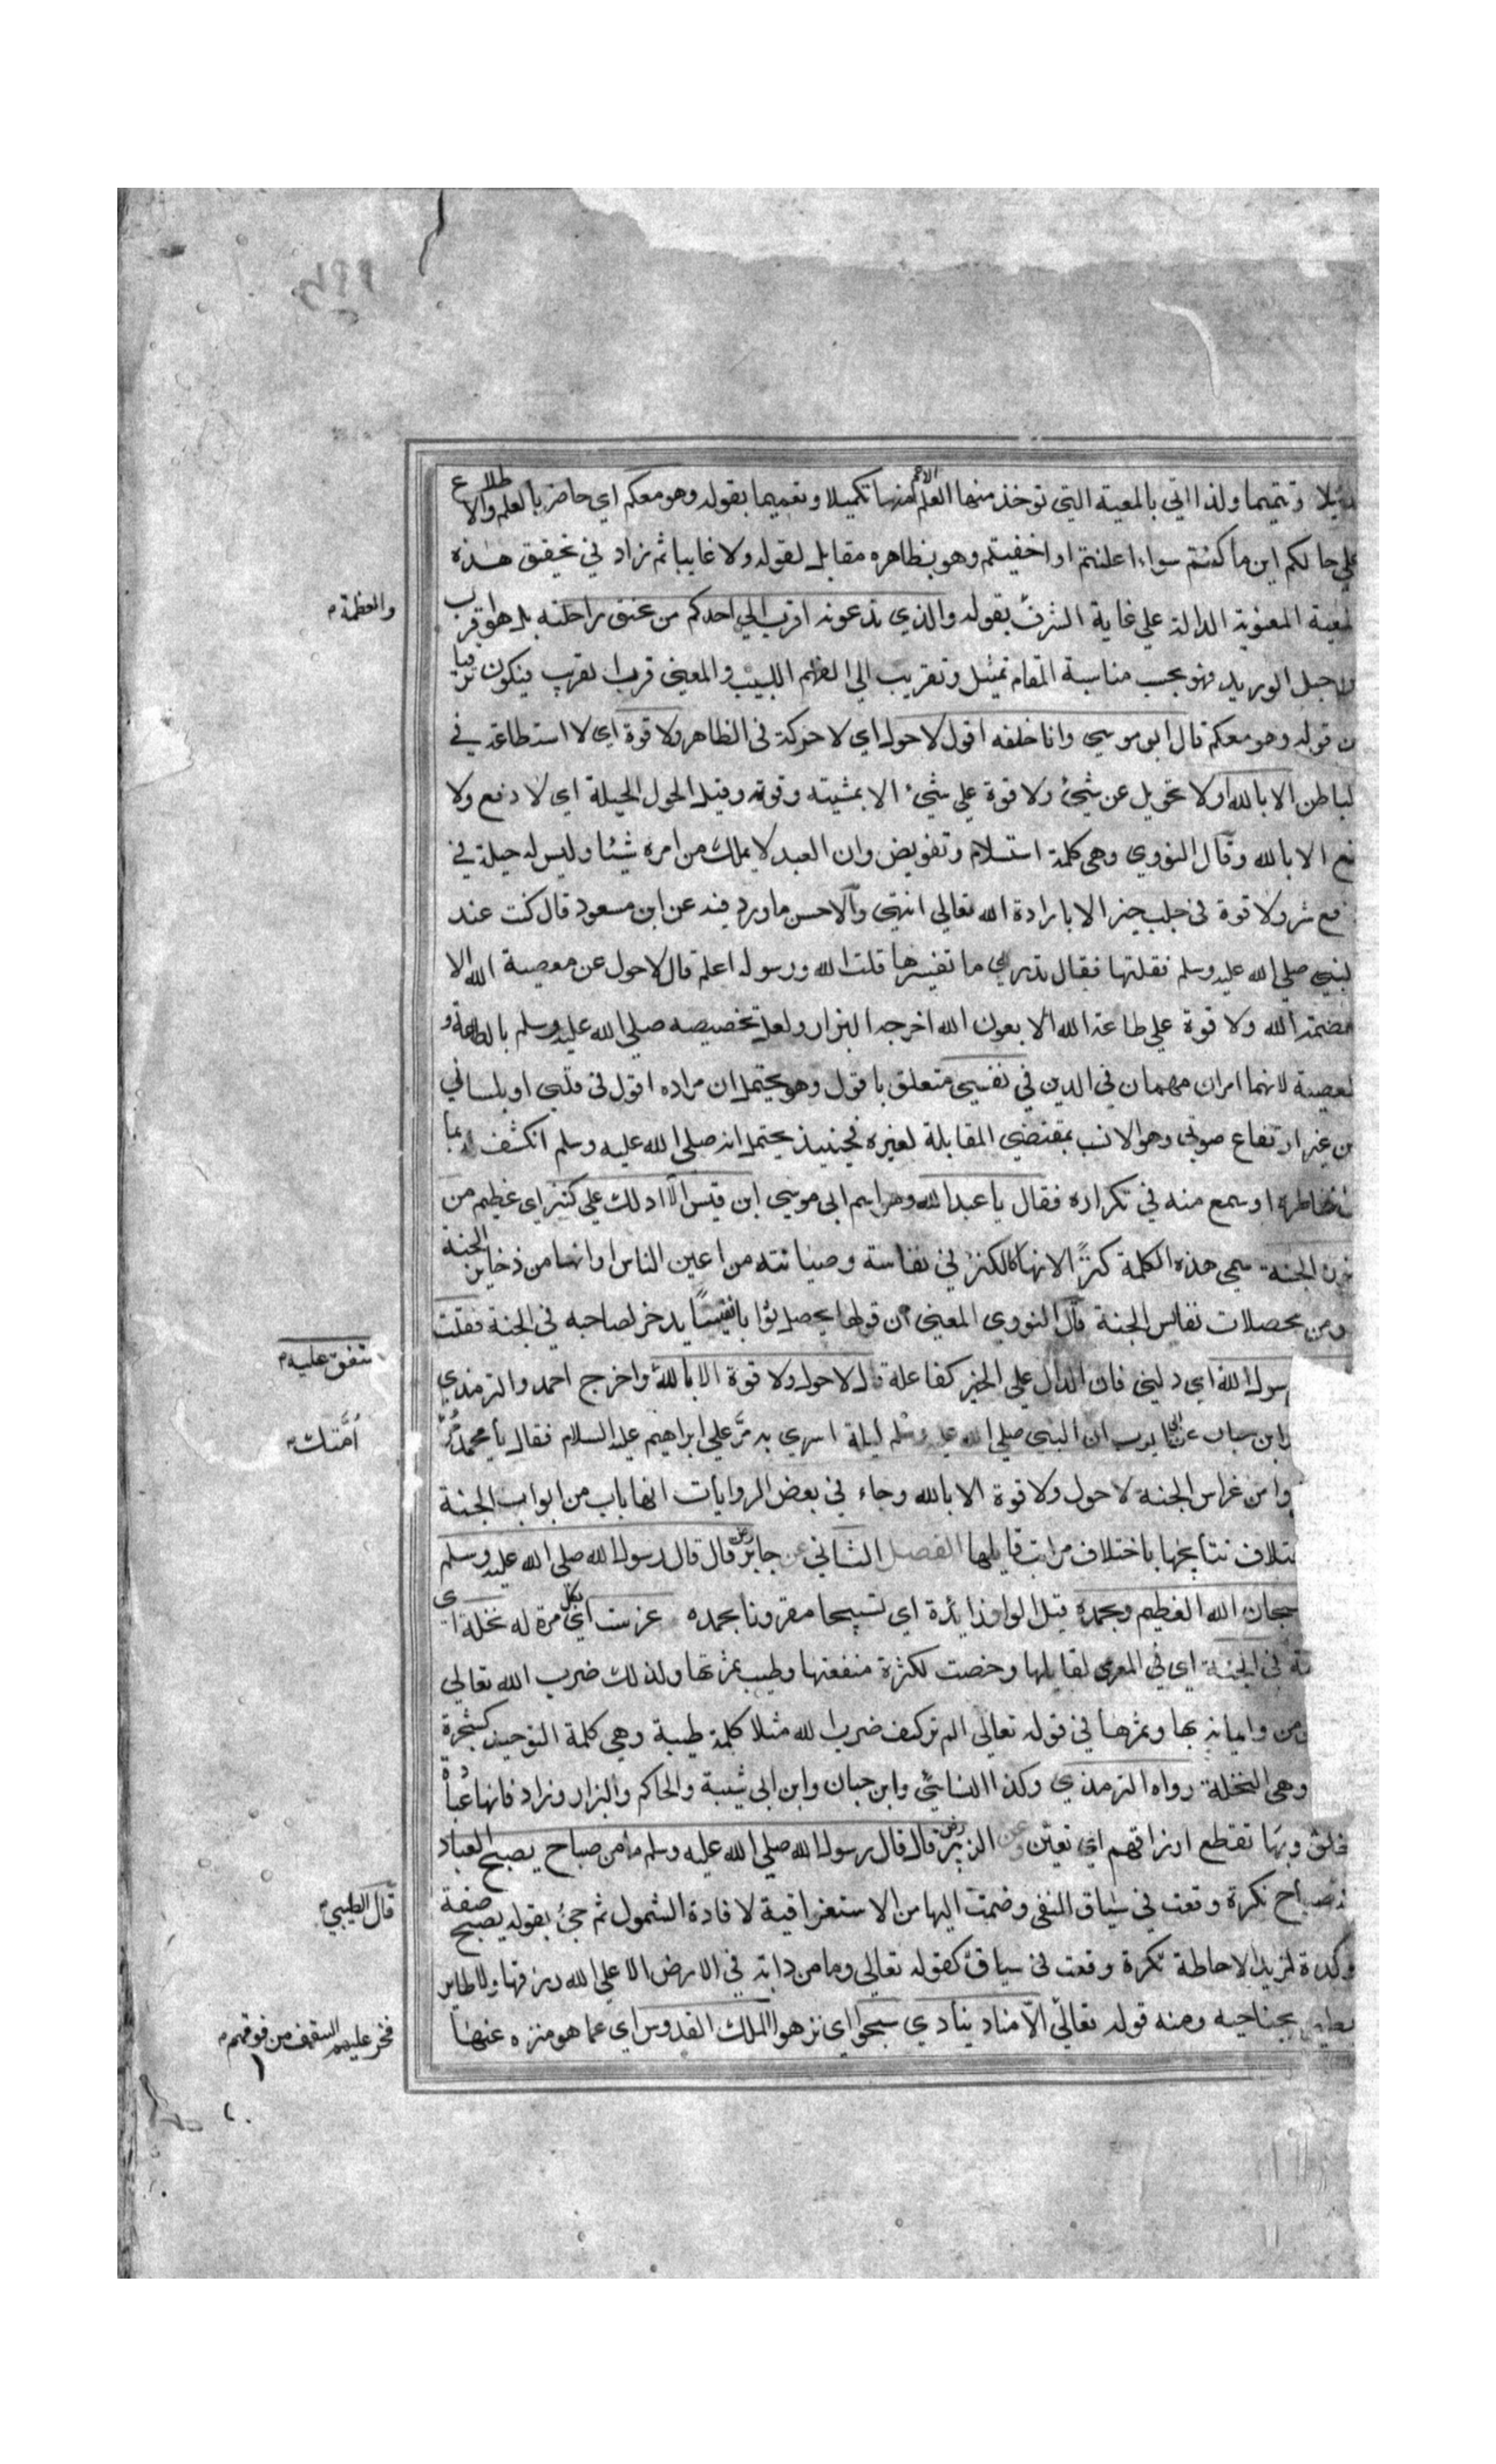 تذييلا وتتميما ولذا اتي بالمعية التي توخذ منها العلم الاعم منها تكميلا وتعميما بقوله وهو معكم اي حاضر بالعلم والاطلاع
علي حالكم اين ما كنتم سواء اعلنتم او اخفيتم وهو بظاهره مقابل لقوله ولا غايبا ثم زاد في تحقيق هذه
المعية المعنوية الدالة علي غاية الشرف بقوله والذي تدعونه اقرب الي احدكم من عنق راحلته بل هو اقرب
والعظمة
من حبل الوريد فهو بحسب مناسبة المقام تمثيل وتقريب الي الفهم اللبيب والمعني قرب القريب فيكون ترقيا
من قوله وهو معكم قال ابو موسي وانا خلفه اقول لاحول اي لا حركة في الظاهر ولا قوة اي لا استطاعة في
الباطن الا بالله او لا تحويل عن شيئ ولا قوة علي شيء الا بمشيته وقوته وقيل الحول الحيلة اي لا دفع ولا
منع الا بالله وقال النووي وهي كلمة استسلام وتفويض وان العبد لا يملك من امره شيئا وليس له حيلة في
دفع شر ولا قوة في جلب خير الا بارادة الله تعالي انتهي والاحسن ما ورد فيه عن ابن مسعود قال كنت عند
النبي صلي الله عليه وسلم فقلتها فقال تدري ما تفسيرها قلت الله ورسوله اعلم قال لاحول عن معصية الله الا
بعصمة الله ولا قوة علي طاعة الله الا بعون الله اخرجه البزار ولعل تخصيصه صلي الله عليه وسلم بالطاعة و
المعصية لانهما امران مهمان في الدين في نفسي متعلق باقول وهو يحتمل ان مراده اقول في قلبي او بلساني
من غير ارتفاع صوتي وهو الانسب بمقتضي المقابلة لغيره فحينيذ يحتمل انه صلي الله عليه وسلم انكشف له بما
بخاطره او سمع منه في تكراره فقال يا عبدالله وهو اسم ابي موسي ابن قيس الا ادلك علي كنز اي عظيم من
كنوز الجنة سمي هذه الكلمة كنزا لانها كالكنز في نفاسة وصيانته من اعين الناس او انها من ذخاير الجنة
ومن محصلات نفائس الجنة قال النووي المعني ان قولها يحصل ثوابا نفيسا يدخر لصاحبه في الجنة فقلت
رسول الله اي دلني فان الدال علي الخير كفاعله قال لاحول ولا قوة الا بالله واخرج احمد والترمذي
متفق عليه
وابن حبان عن ابي ايوب ان النبي صلي الله عليه وسلم ليلة اسري به مر علي ابراهيم عليه السلام فقال يا محمد مر
أمتك
وا من غراس الجنة لاحول ولا قوة الا بالله وجاء في بعض الروايات انها باب من ابواب الجنة
ختلاف نتائجها باختلاف مراتب قايلها الفصل الثاني عن جابر رض قال قال رسول الله صلي الله عليه وسلم
سبحان الله العظيم وبحمده قيل الواو زائدة اي تسبيحا مقرونا بحمده غرست اي بكل مرة له نخلة اي
في الجنة اي في المعرى لقايلها وخصت لكثرة منفعتها وطيب ثمرتها ولذلك ضرب الله تعالي
من وايمانه بها وثمرها في قوله تعالي الم تر كيف ضرب الله مثلا كلمة طيبة وهي كلمة التوحيد كشجرة
وهي النخلة رواه الترمذي وكذا النسائي وابن حبان وابن ابي شيبة والحاكم والبزار وزاد فانها عبادة
الخلق وبها تقطع ارزاقهم اي تعين وعن الزبير رض قال قال رسول الله صلي الله عليه وسلم ما من صباح يصبح العباد
صباح نكرة وقعت في سياق النفي وضمت اليها من الاستغراقية لافادة الشمول ثم جيئ بقوله يصبح صفة
قال الطيبي
مؤكدة لمزيد الاحاطة نكرة وقعت في سياق كقوله تعالي وما من دابة في الارض الا علي الله رزقها ولا طاير
يطير بجناحيه ومنه قوله تعالي الا مناد ينادي سبحوا اي نزهوا الملك القدوس اي عما هو منزه عنها
فخر عليهم السقف من فوقهم